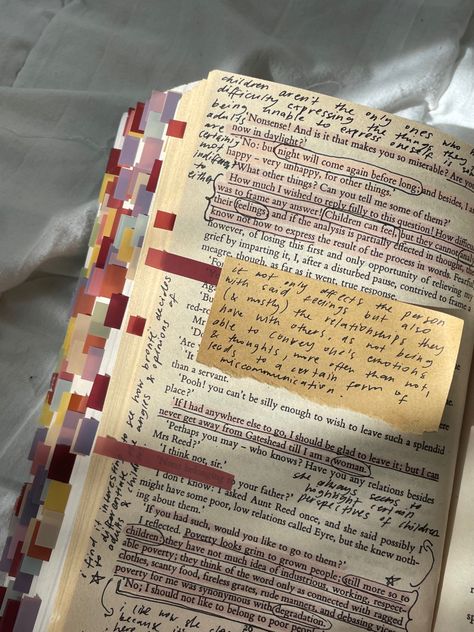 children aren't the only ones who
difficulty expressing the things they
being unable to express oneself
adults
are
certainly
not
indifferent
to
either
'Nonsense! And is it that makes you so miserable? Are
now in daylight?'
'No: but night will come again before long: and besides, I a
happy – very unhappy, for other things.'
'What other things? Can you tell me some of them?'
How much I wished to reply fully to this question! How diffi
was to frame any answer! Children can feel, but they cannot
their feelings; and if the analysis is partially effected in thought,
know not how to express the result of the process in words. Fearfu
however, of losing this first and only opportunity of relieving
grief by imparting it, I, after a disturbed pause, contrived to frame a
meagre, though, as far as it went, true response.
it not only affects the person
with said feelings but also
(& mostly) the relationships they
have with others, as not being
able to convey one's emotions
& thoughts, more often than not,
leads to a certain form of
miscommunication.
than a servant.'
'Pooh! you can't be silly enough to wish to leave such a splendid
place?'
'If I had anywhere else to go, I should be glad to leave it; but I can
never get away from Gateshead till I am a woman.'
'Perhaps you may – who knows? Have you any relations besides
Mrs Reed?'
'I think not, sir.'
she always seems to
highlight certain
perspectives of children
your father?'
'I don't know: I asked Aunt Reed once, and she said possibly I
might have some poor, low relations called Eyre, but she knew noth-
ing about them.'
'If you had such, would you like to go to them?'
I reflected. Poverty looks grim to grown people; still more so to
children: they have not much idea of industrious, working, respect-
able poverty; they think of the word only as connected with ragged
clothes, scanty food, fireless grates, rude manners, and debasing vices:
poverty for me was synonymous with degradation.
'No; I should not like to belong to poor people,'
i find it interesting to see how brontë decides
to differentiate the angles & opinions of
adults & children
i like how she
because it's
here